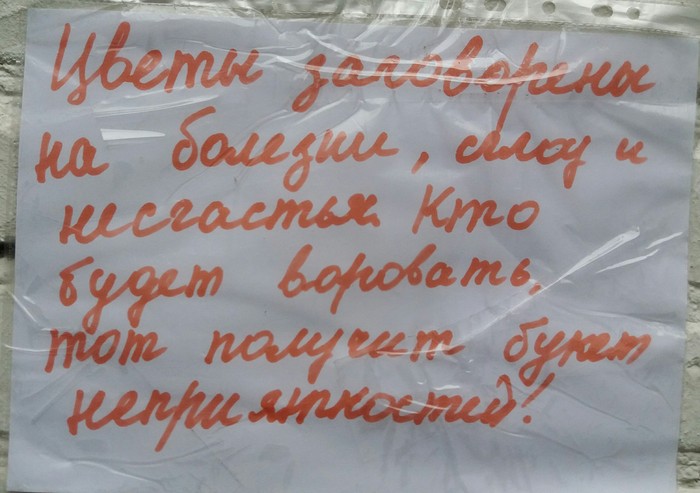 Цветы заговорены
на болезни, слёзы и
несчастья. Кто
будет воровать,
тот получит букет
неприятностей!